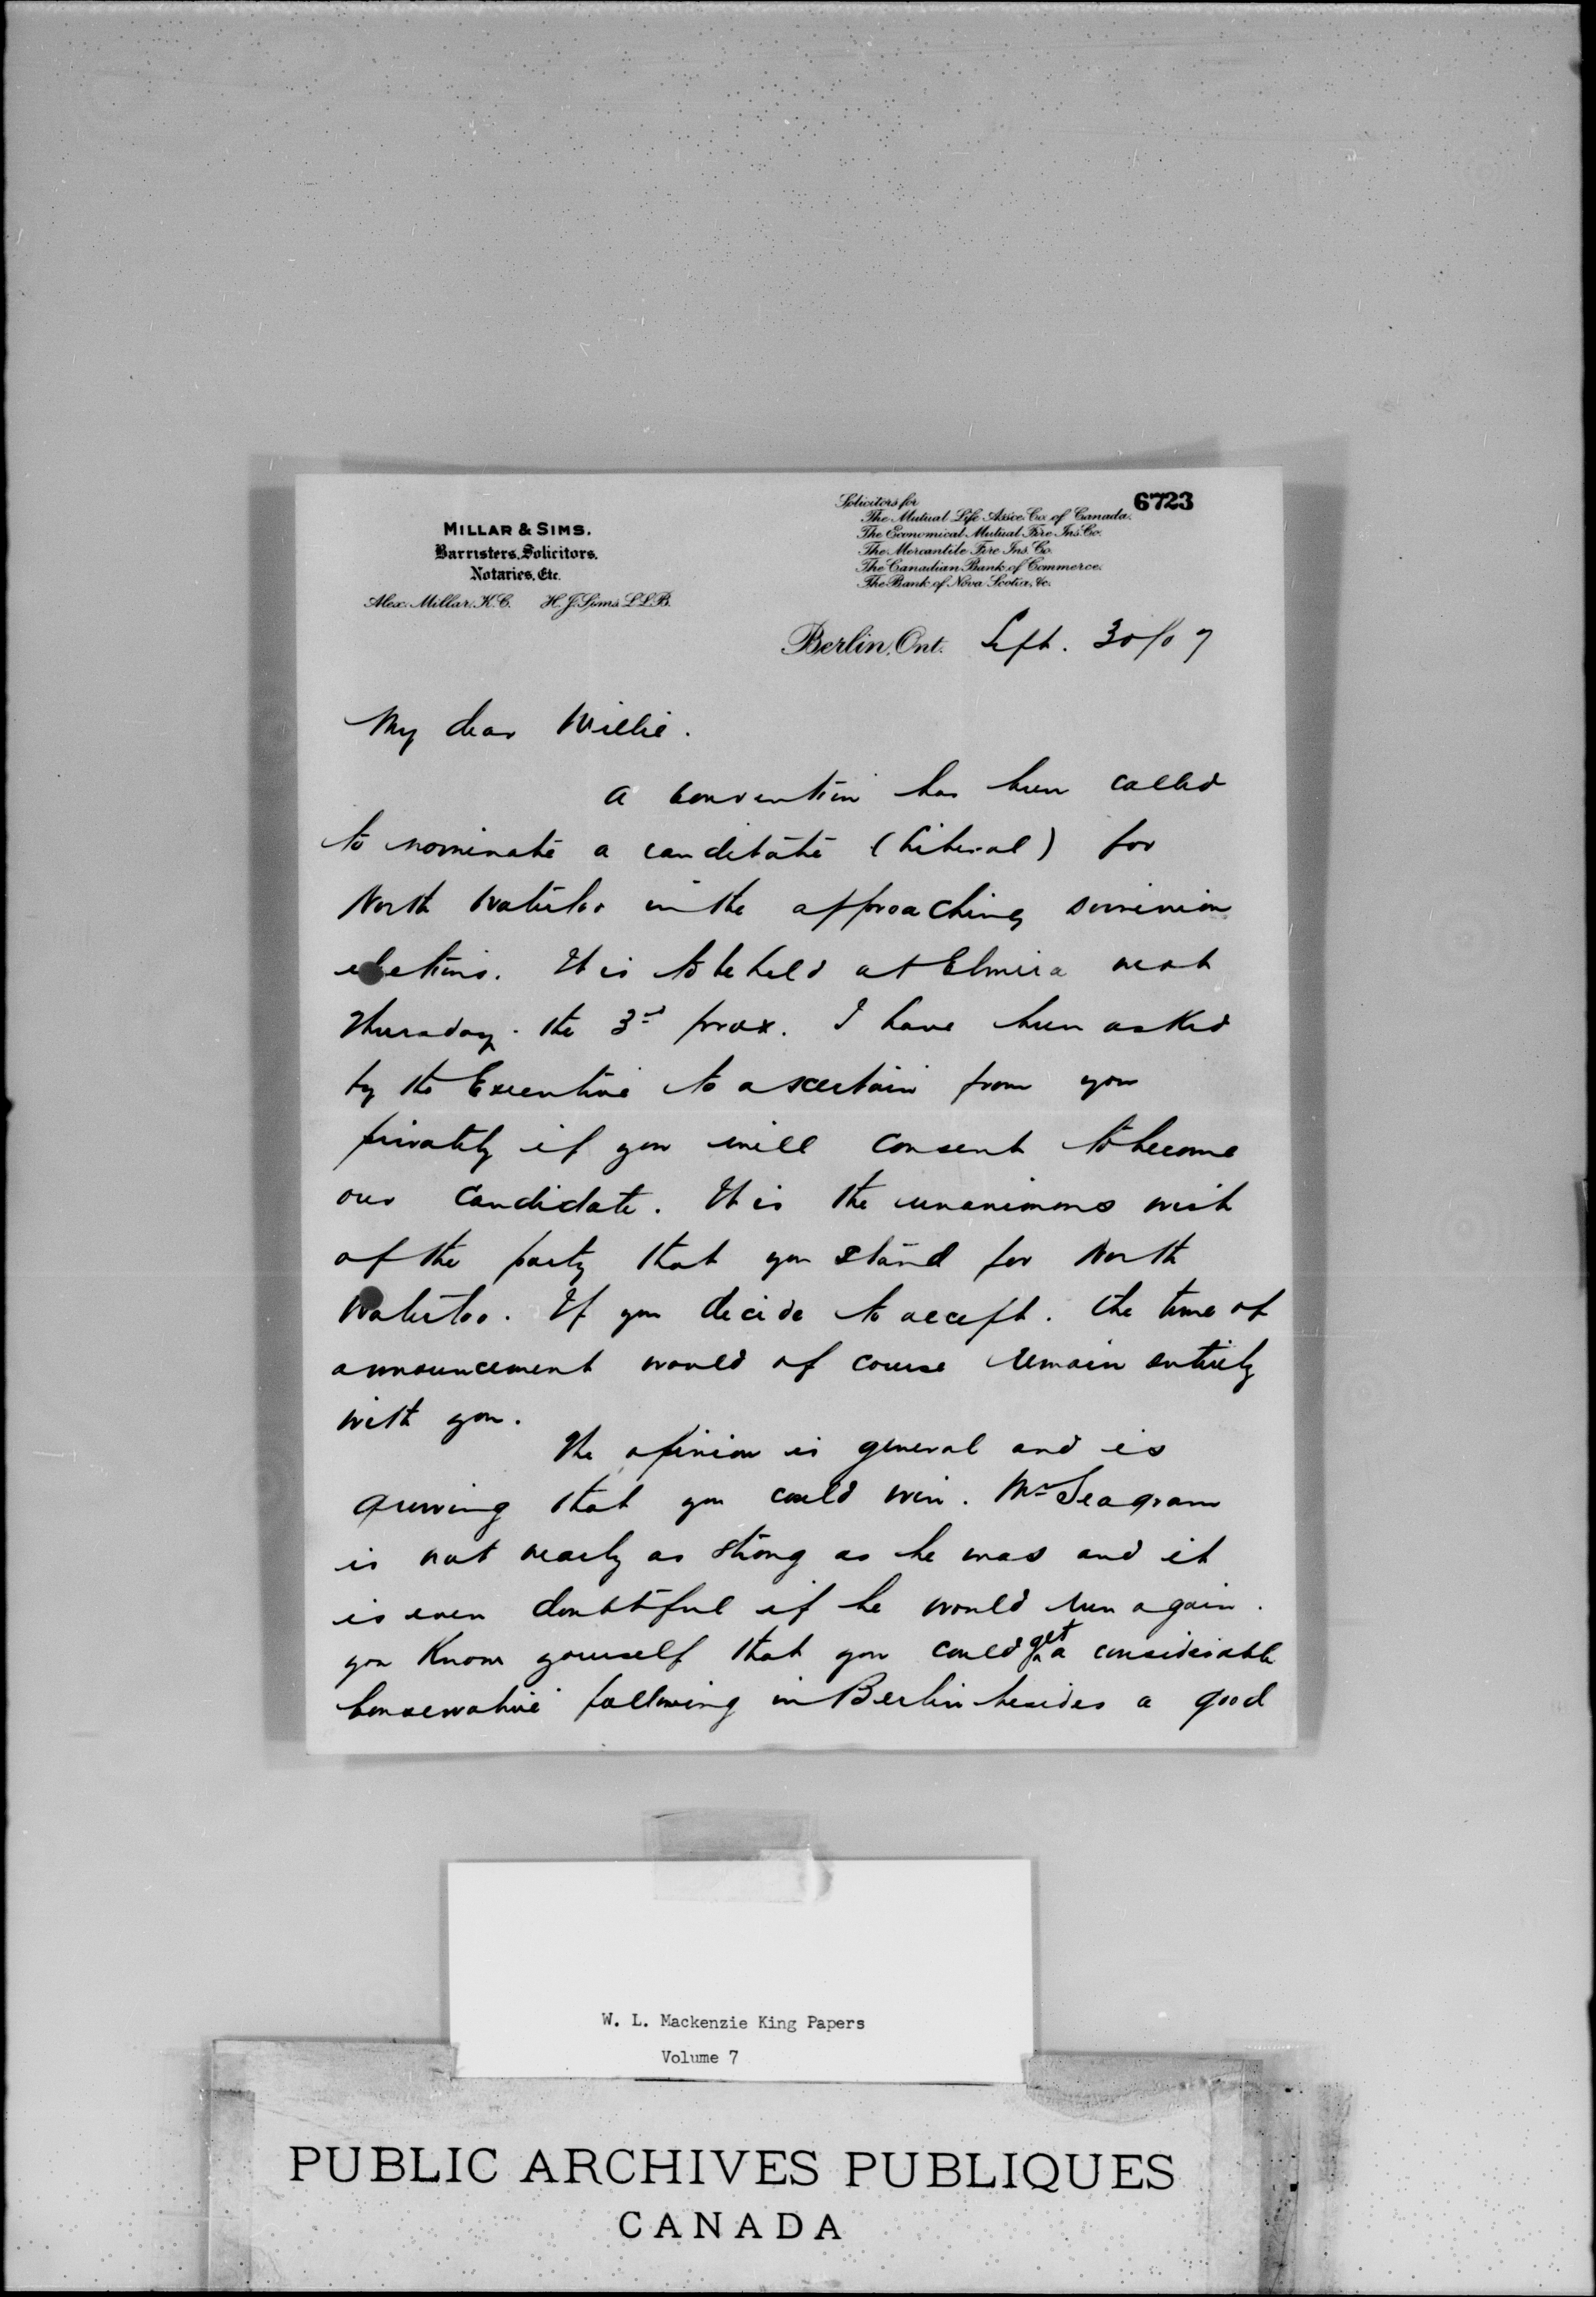 6723
MILLAR & SIMS.
Barristers, Solicitors,
Notaries, Etc.
Alex. Millar, K.C. H. J. Sims, LL.B.
Solicitors for
The Mutual Life Assce. Co. of Canada.
The Economical Mutual Fire Ins. Co.
The Mercantile Fire Ins. Co.
The Canadian Bank of Commerce.
The Bank of Nova Scotia, &c.
Berlin, Ont. Sept. 30/07
My dear Willie.
A convention has been called
to nominate a canditate (Liberal) for
North Waterloo in the approaching Dominion
elections. It is to be held at Elmira next
Thursday. the 3rd prox. I have been asked
by the Executive to ascertain from you
privately if you will consent to become
our candidate. It is the unanimous wish
of the party that you stand for North
Waterloo. If you decide to accept. the time of
announcement would of course remain entirely
with you.
The opinion is general and is
growing that you could win. Mr Seagram
is not nearly as strong as he was and it
is even doubtful if he would run again.
you know yourself that you could get a considerable
Conservative following in Berlin besides a good
W. L. Mackenzie King Papers
Volume 7
PUBLIC ARCHIVES PUBLIQUES
CANADA